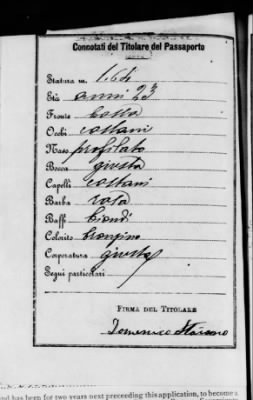 Connotati del Titolare del Passaporto
Statura m. 1.64
Età anni 23
Fronte bassa
Occhi castani
Naso profilato
Bocca giusta
Capelli castani
Barba rasa
Baffi biondi
Colorito
Corporatura giusta
Segni particolari
FIRMA DEL TITOLARE
Domenico
and has been for two years next preceding this application, to become a